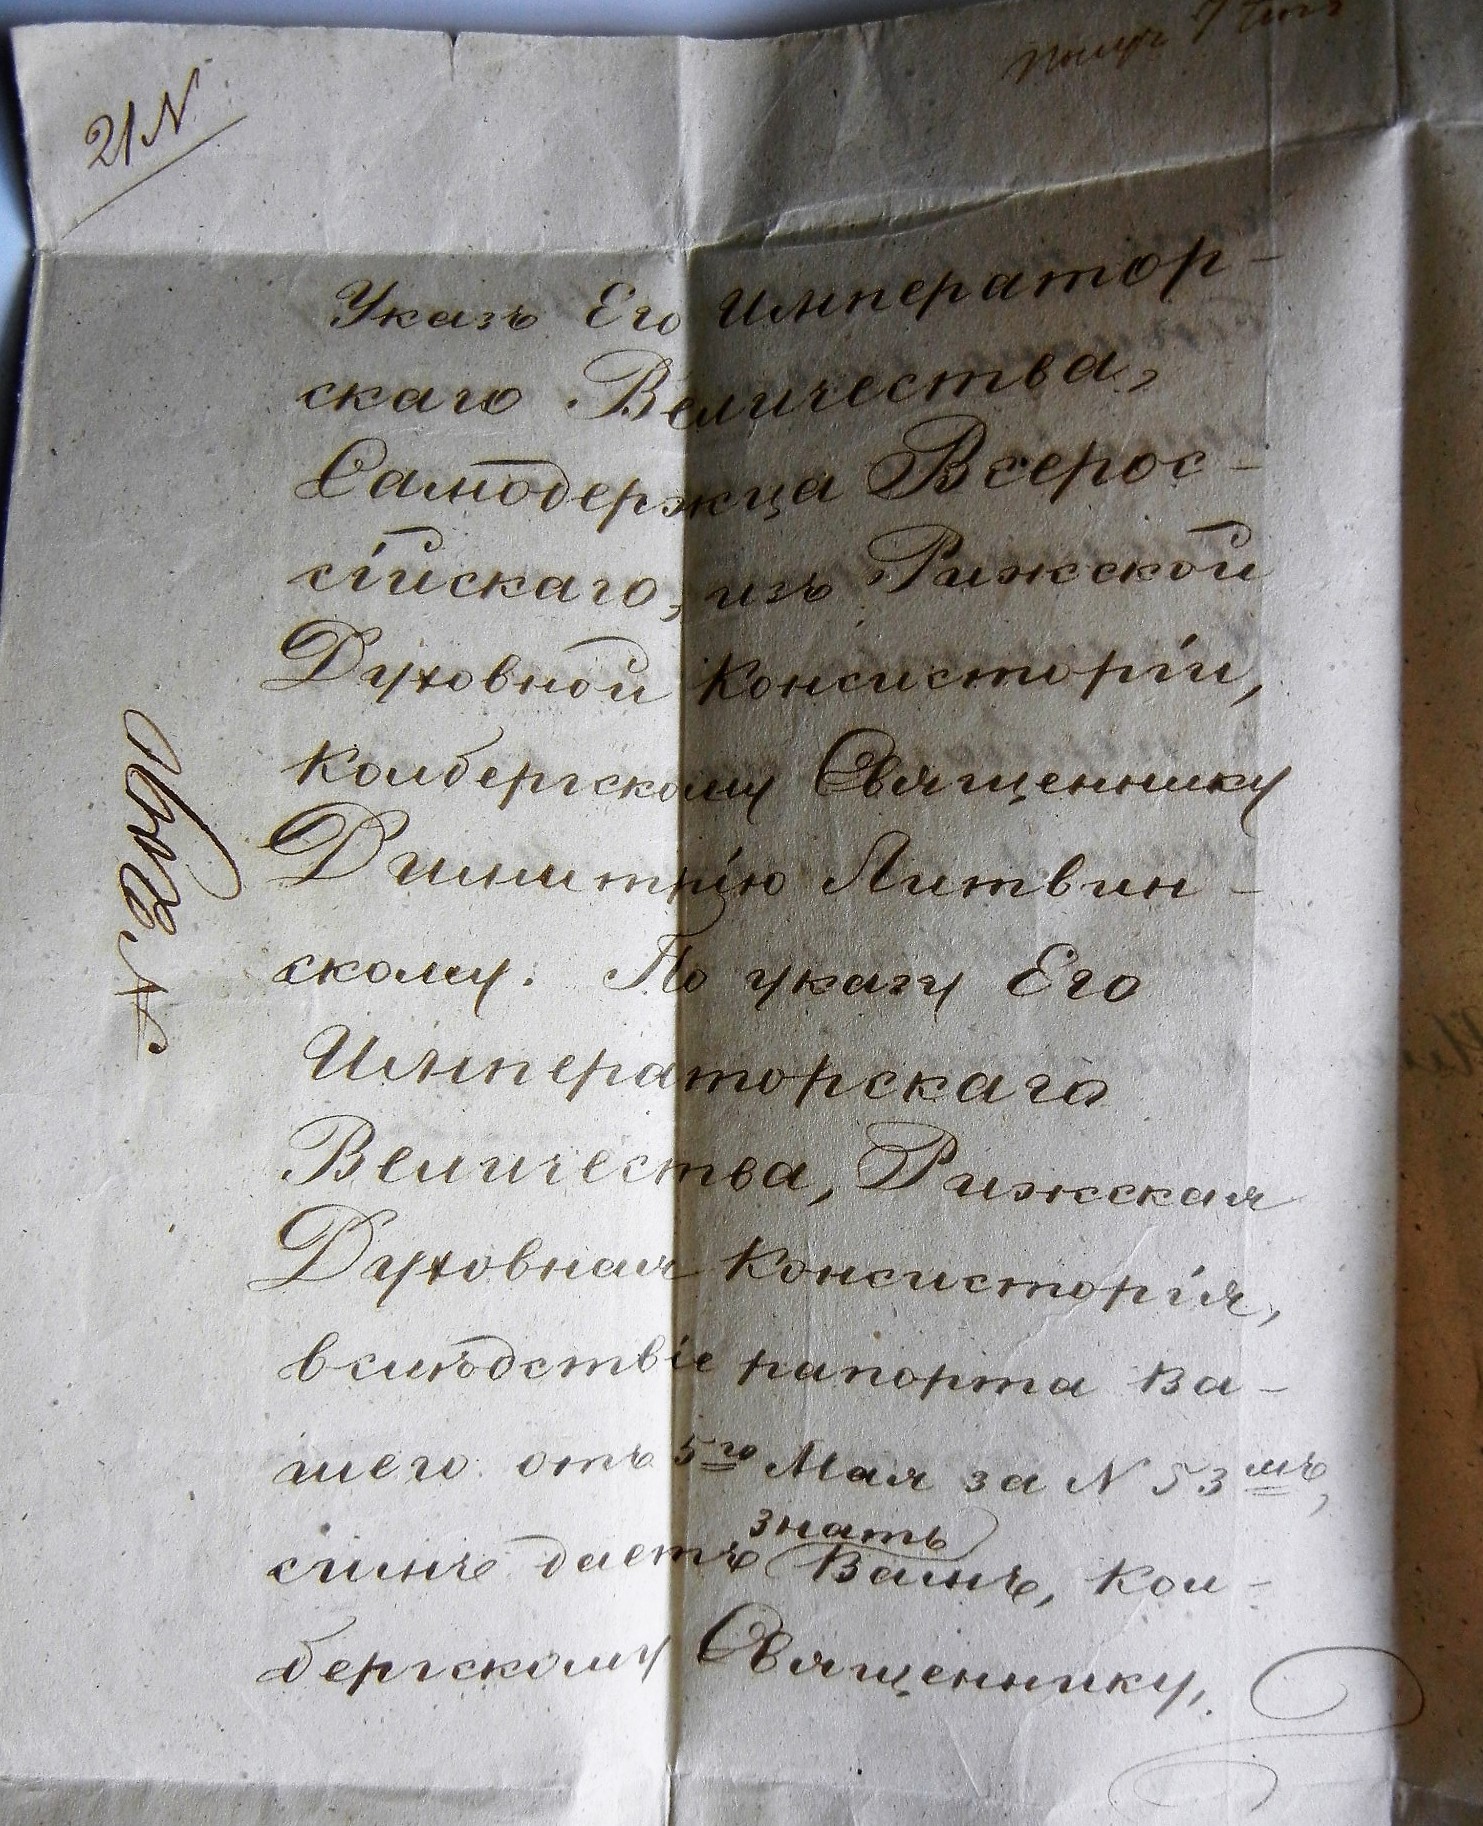 21 N
Указъ Его Император-
скаго Величества,
Самодержца Всерос-
сійскаго, изъ Рижской
Духовной Консисторіи,
Колбергскому Священнику
Димитрію Литвин-
скому. По указу Его
Императорскаго
Величества, Рижская
Духовная Консисторія,
вслѣдствіе рапорта Ва-
шего отъ 5го Мая за N 53мъ,
симъ даетъ знать Вамъ, Кол-
бергскому Священнику,